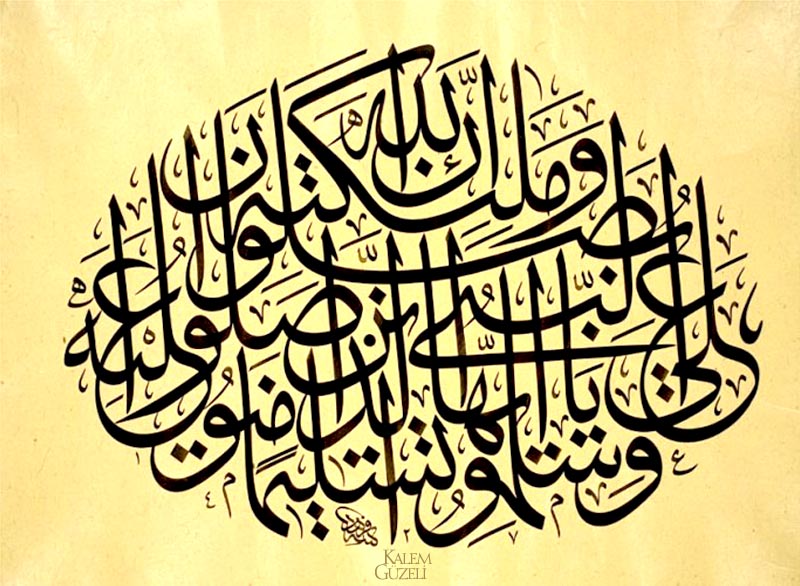 إن الله وملئكته يصلون
على النبى يا أيها الذين امنوا صلوا عليه
وسلموا تسليما
KALEM
GÜZELİ